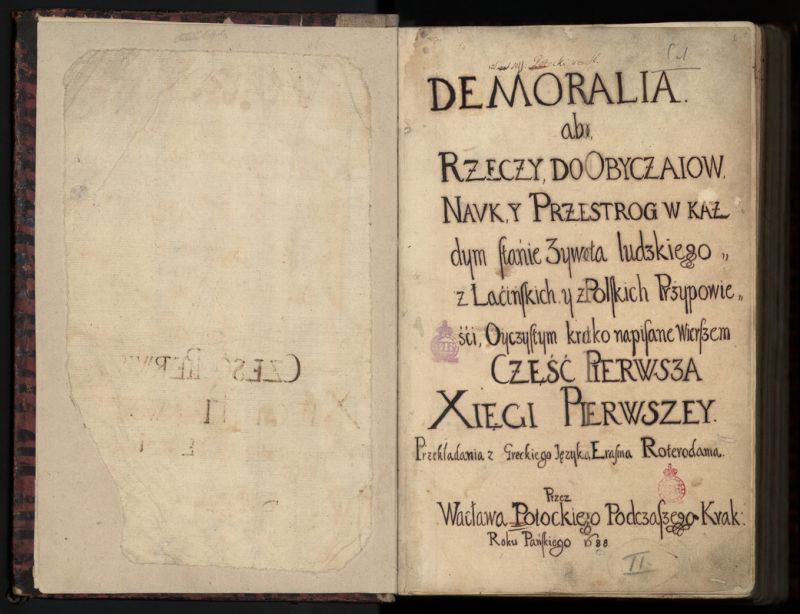 CZĘŚĆ PIERWS
DEMORALIA.
abo,
RZECZY, DO OBYCZAIOW,
NAUK, Y PRZESTROG W KAŻ
dym stanie Zywota ludzkiego „
z Łacińskich y z Polskich Przypowie„
ści, Oyczystym krotko napisane Wierszem
CZĘŚĆ PIERWSZA
XIĘGI PIERWSZEY.
Przekładania z Greckiego Języka Erasma Roterodama.
Przez
Wacława Potockiego Podczaszego Krak:
Roku Pańskiego 1688
II.